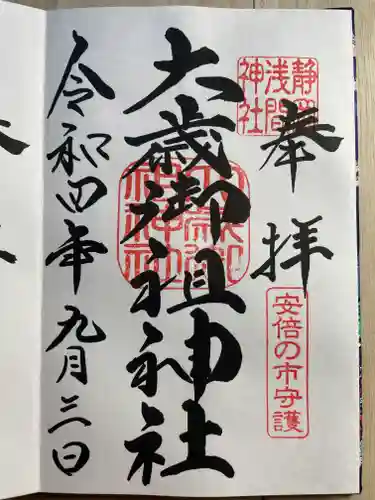 奉拝
静岡
浅間
神社
安倍の市守護
大歳御祖神社
令和四年九月三日